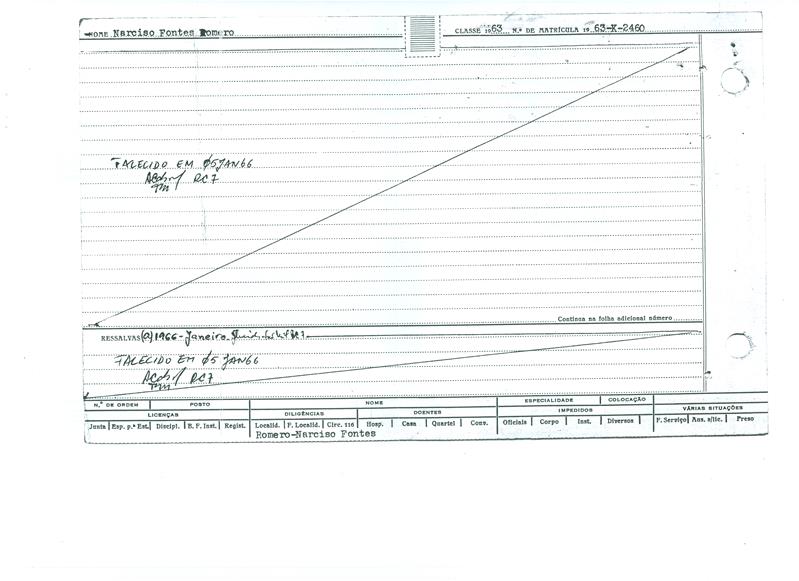 NOME Narciso Fontes Romero
CLASSE 1963 N.º DE MATRÍCULA 19 63-K-2460
FALECIDO EM Ø5JAN66
RC7
Continua na folha adicional número
RESSALVAS (a) 1966 - Janeiro
FALECIDO EM Ø5 JAN66
RC7
N.º DE ORDEM POSTO NOME ESPECIALIDADE COLOCAÇÃO
LICENÇAS DILIGÊNCIAS DOENTES IMPEDIDOS VÁRIAS SITUAÇÕES
Junta Esp. p.ª Est. Discipl. B. F. Inst. Regist. Localid. F. Localid. Circ. 116 Hosp. Casa Quartel Conv. Oficiais Corpo Inst. Diversos F. Serviço Aus. s/lic. Preso
Romero-Narciso Fontes